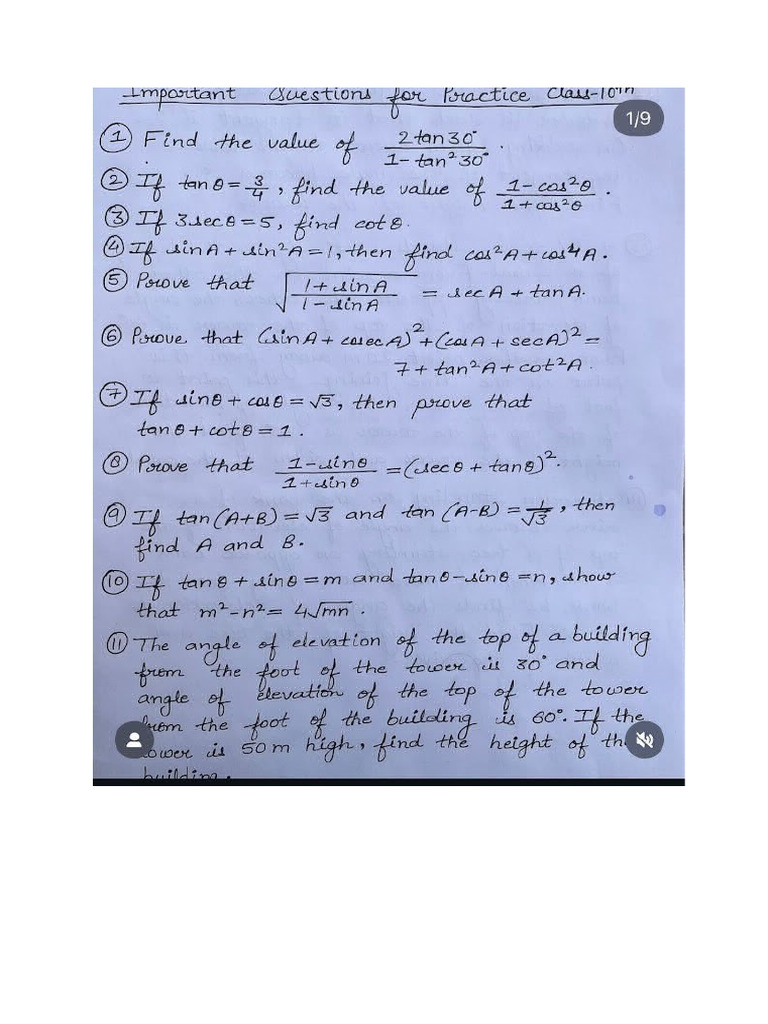 Important Questions for Practice Class-10th
1/9
① Find the value of 2tan30° / 1-tan²30° .
② If tanθ = 3/4, find the value of 1-cos²θ / 1+cos²θ .
③ If 3secθ = 5, find cotθ.
④ If sinA + sin²A = 1, then find cos²A + cos⁴A.
⑤ Prove that √(1+sinA / 1-sinA) = secA + tanA.
⑥ Prove that (sinA + cosecA)² + (cosA + secA)² =
7 + tan²A + cot²A.
⑦ If sinθ + cosθ = √3, then prove that
tanθ + cotθ = 1.
⑧ Prove that 1-sinθ / 1+sinθ = (secθ + tanθ)².
⑨ If tan(A+B) = √3 and tan(A-B) = 1/√3, then
find A and B.
⑩ If tanθ + sinθ = m and tanθ - sinθ = n, show
that m² - n² = 4√mn.
⑪ The angle of elevation of the top of a building
from the foot of the tower is 30° and
angle of elevation of the top of the tower
from the foot of the building is 60°. If the
tower is 50m high, find the height of the
building.